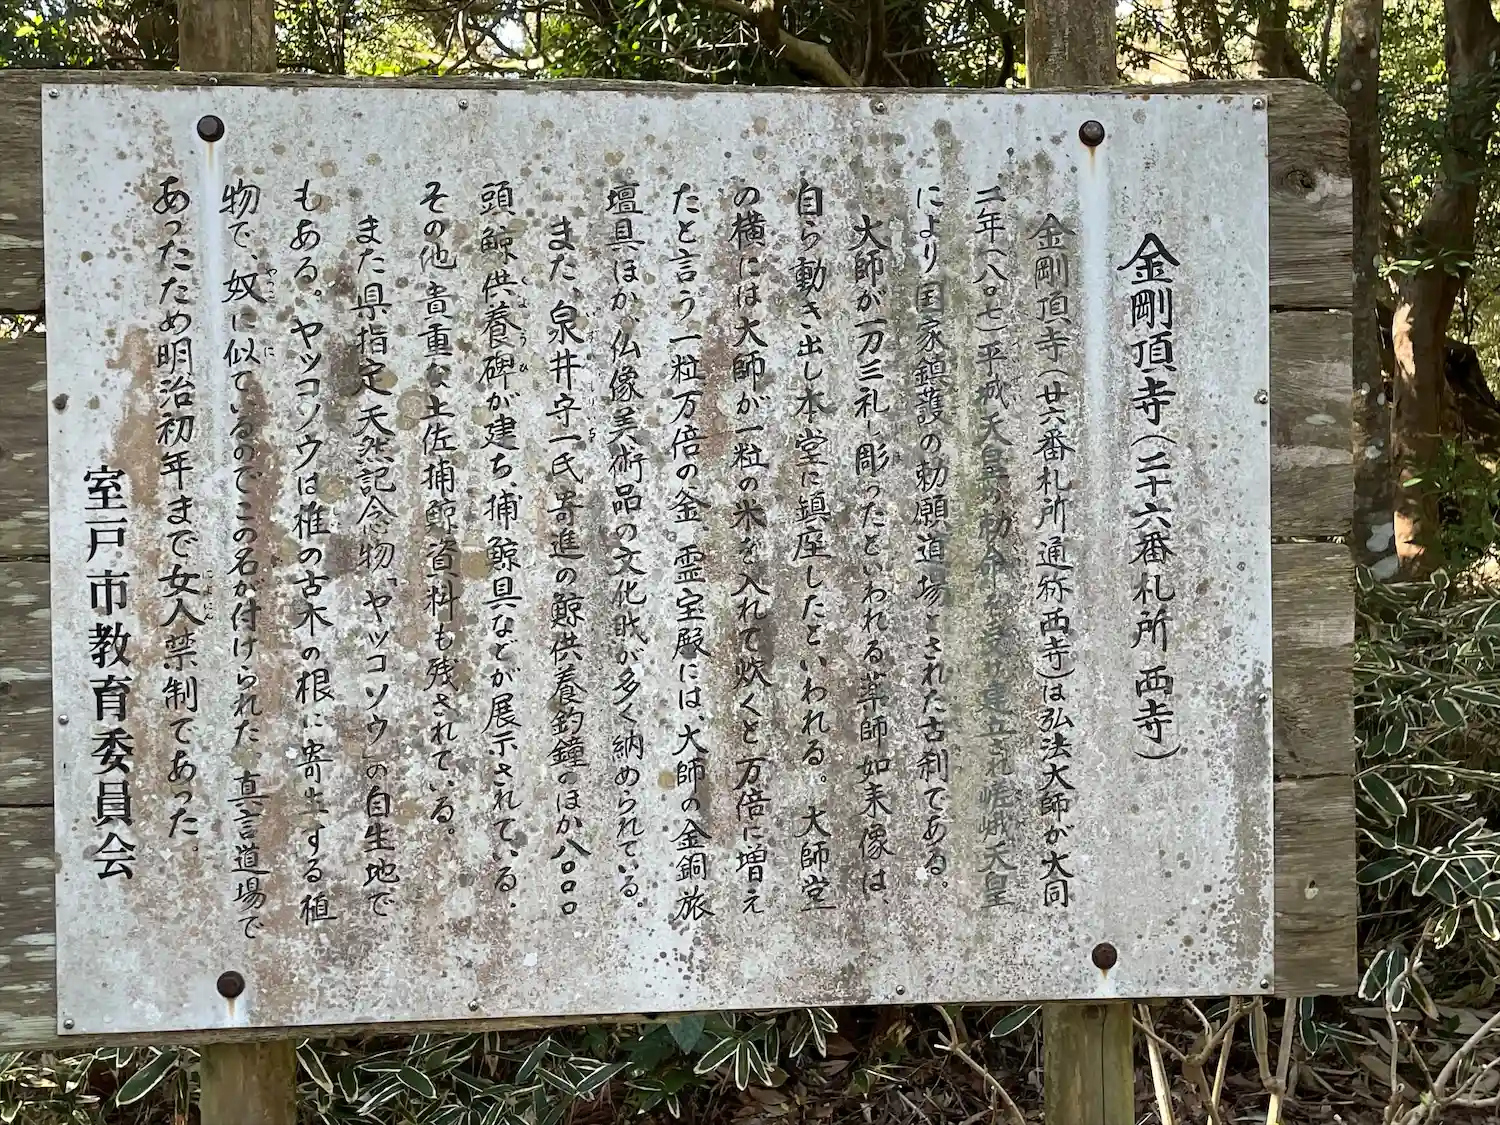 金剛頂寺(二十六番札所 西寺)
金剛頂寺(廿六番札所通称西寺)は弘法大師が大同
二年(八〇七)平城天皇の勅命 建立され嵯峨天皇
により国家鎮護の勅願道場とされた古刹である。
大師が一刀三礼し彫ったといわれる薬師如来像は、
自ら動き出し本堂に鎮座したといわれる。大師堂
の横には大師が一粒の米を入れて炊くと万倍に増え
たと言う一粒万倍の釜、霊宝殿には、大師の金銅旅
壇具ほか仏像美術品の文化財が多く納められている。
また、泉井守一氏寄進の鯨供養釣鐘のほか八〇〇〇
頭鯨供養碑が建ち、捕鯨具などが展示されている。
その他貴重な土佐捕鯨資料も残されている。
また県指定天然記念物「ヤッコソウ」の自生地で
もある。ヤッコソウは椎の古木の根に寄生する植
物で、奴に似ているのでこの名が付けられた、真言道場で
あったため明治初年まで女人禁制であった。
室戸市教育委員会